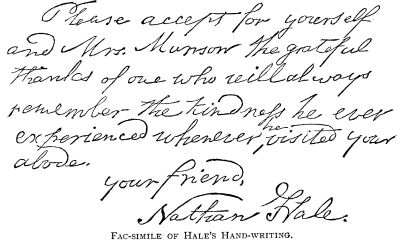 Please accept for yourself
and Mrs. Munson the grateful
thanks of one who will always
remember the kindness he ever
experienced whenever he visited your
abode.
your friend,
Nathan Hale.
FAC-SIMILE OF HALE'S HAND-WRITING.